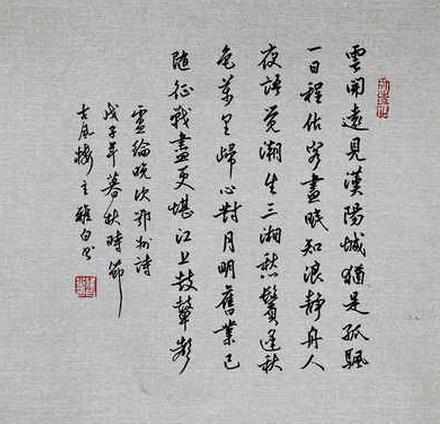 雲開遠見漢陽城猶是孤颿
一日程估客晝眠知浪靜舟人
夜語覺潮生三湘愁鬢逢秋
色萬里歸心對月明舊業已
隨征戰盡更堪江上鼓鼙聲
盧綸晚次鄂州詩
戊子年暮秋時節
古風樓主雅白书